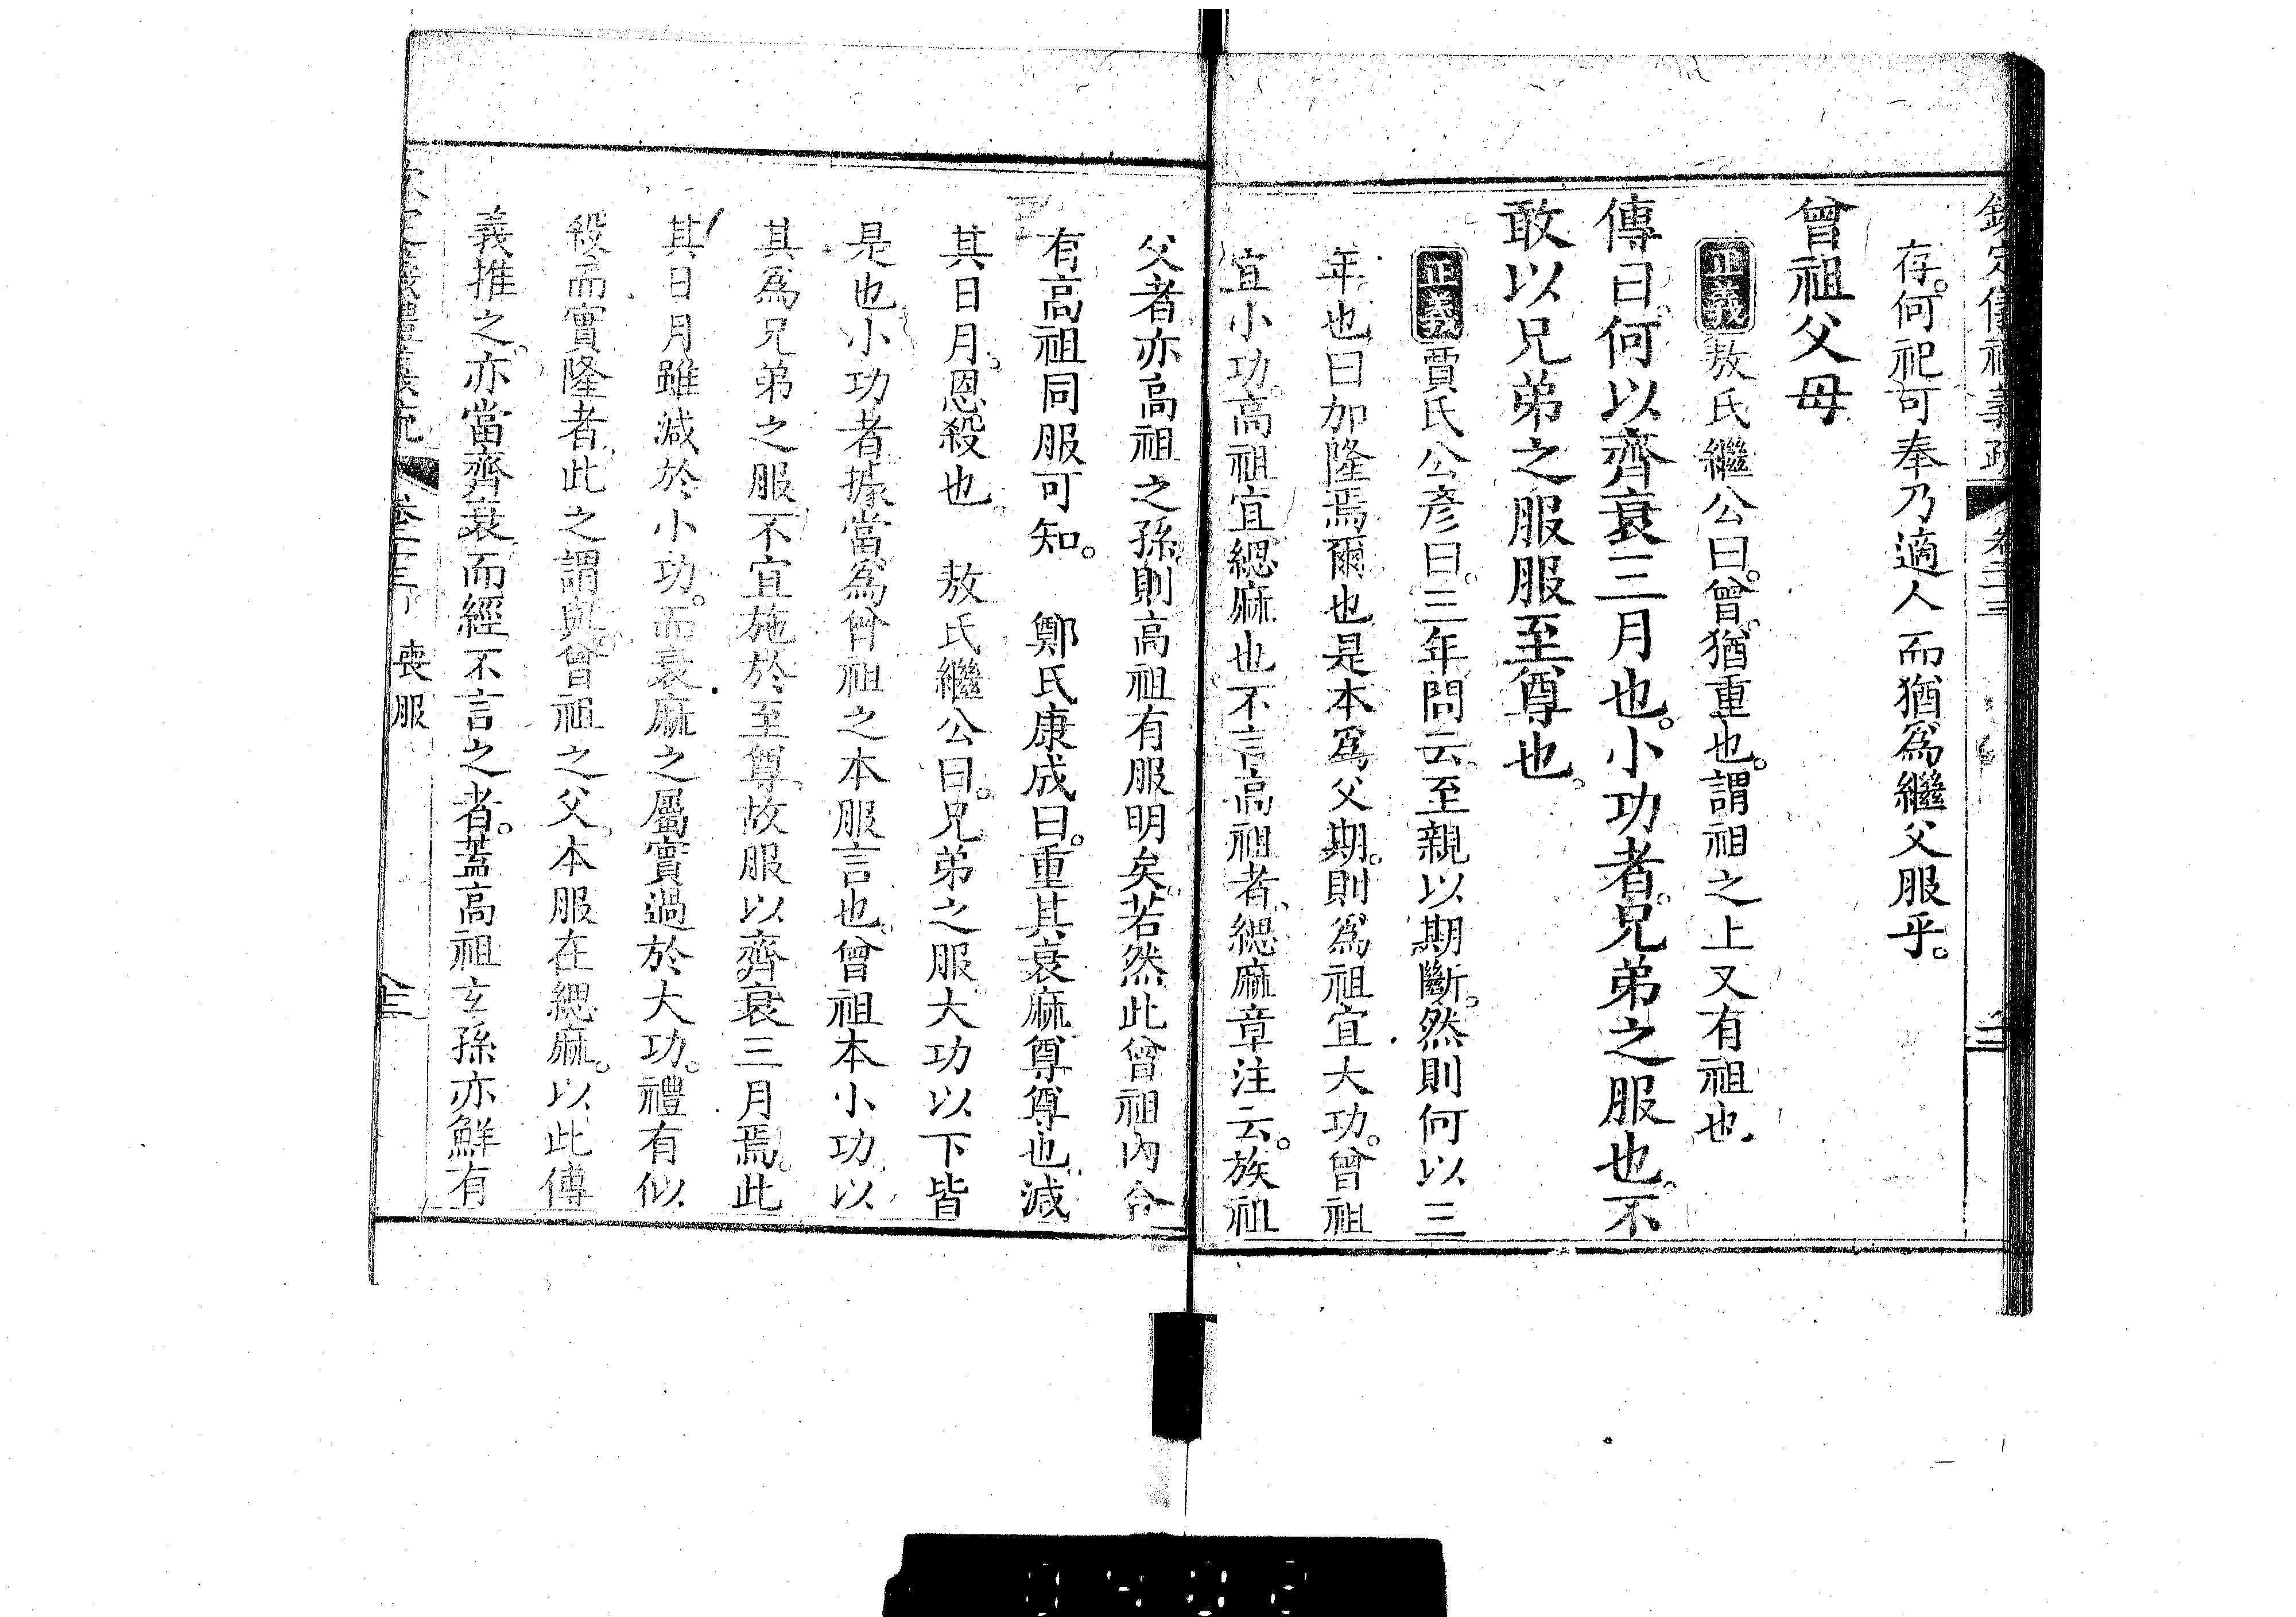 欽定儀禮義疏 卷二十三
存。何祀可奉乃適人而猶爲繼父服乎。
曾祖父母
正義敖氏繼公曰。曾。猶重也。謂祖之上又有祖也
傳曰。何以齊衰三月也。小功者。兄弟之服也。不
敢以兄弟之服服至尊也。
正義賈氏公彥曰。三年問云至親以期斷。然則何以三
年也曰加隆焉爾也是本爲父期。則爲祖宜大功。曾祖
宜小功。高祖宜緦麻也不言高祖者。緦麻章注云。族祖
父者亦高祖之孫。則高祖有服明矣。若然此曾祖內合
有高祖同服可知。 鄭氏康成曰。重其衰麻尊尊也。減
其日月。恩殺也。 敖氏繼公曰。兄弟之服。大功以下皆
是也。小功者據當爲曾祖之本服言也。曾祖本小功。以
其爲兄弟之服。不宜施於至尊。故服以齊衰三月焉。此
其日月雖減於小功。而衰麻之屬實過於大功。禮有似
殺而實隆者。此之謂與。曾祖之父。本服在緦麻。以此傳
義推之。亦當齊衰。而經不言之者。蓋高祖玄孫亦鮮有
欽定儀禮義疏 卷二十三 喪服